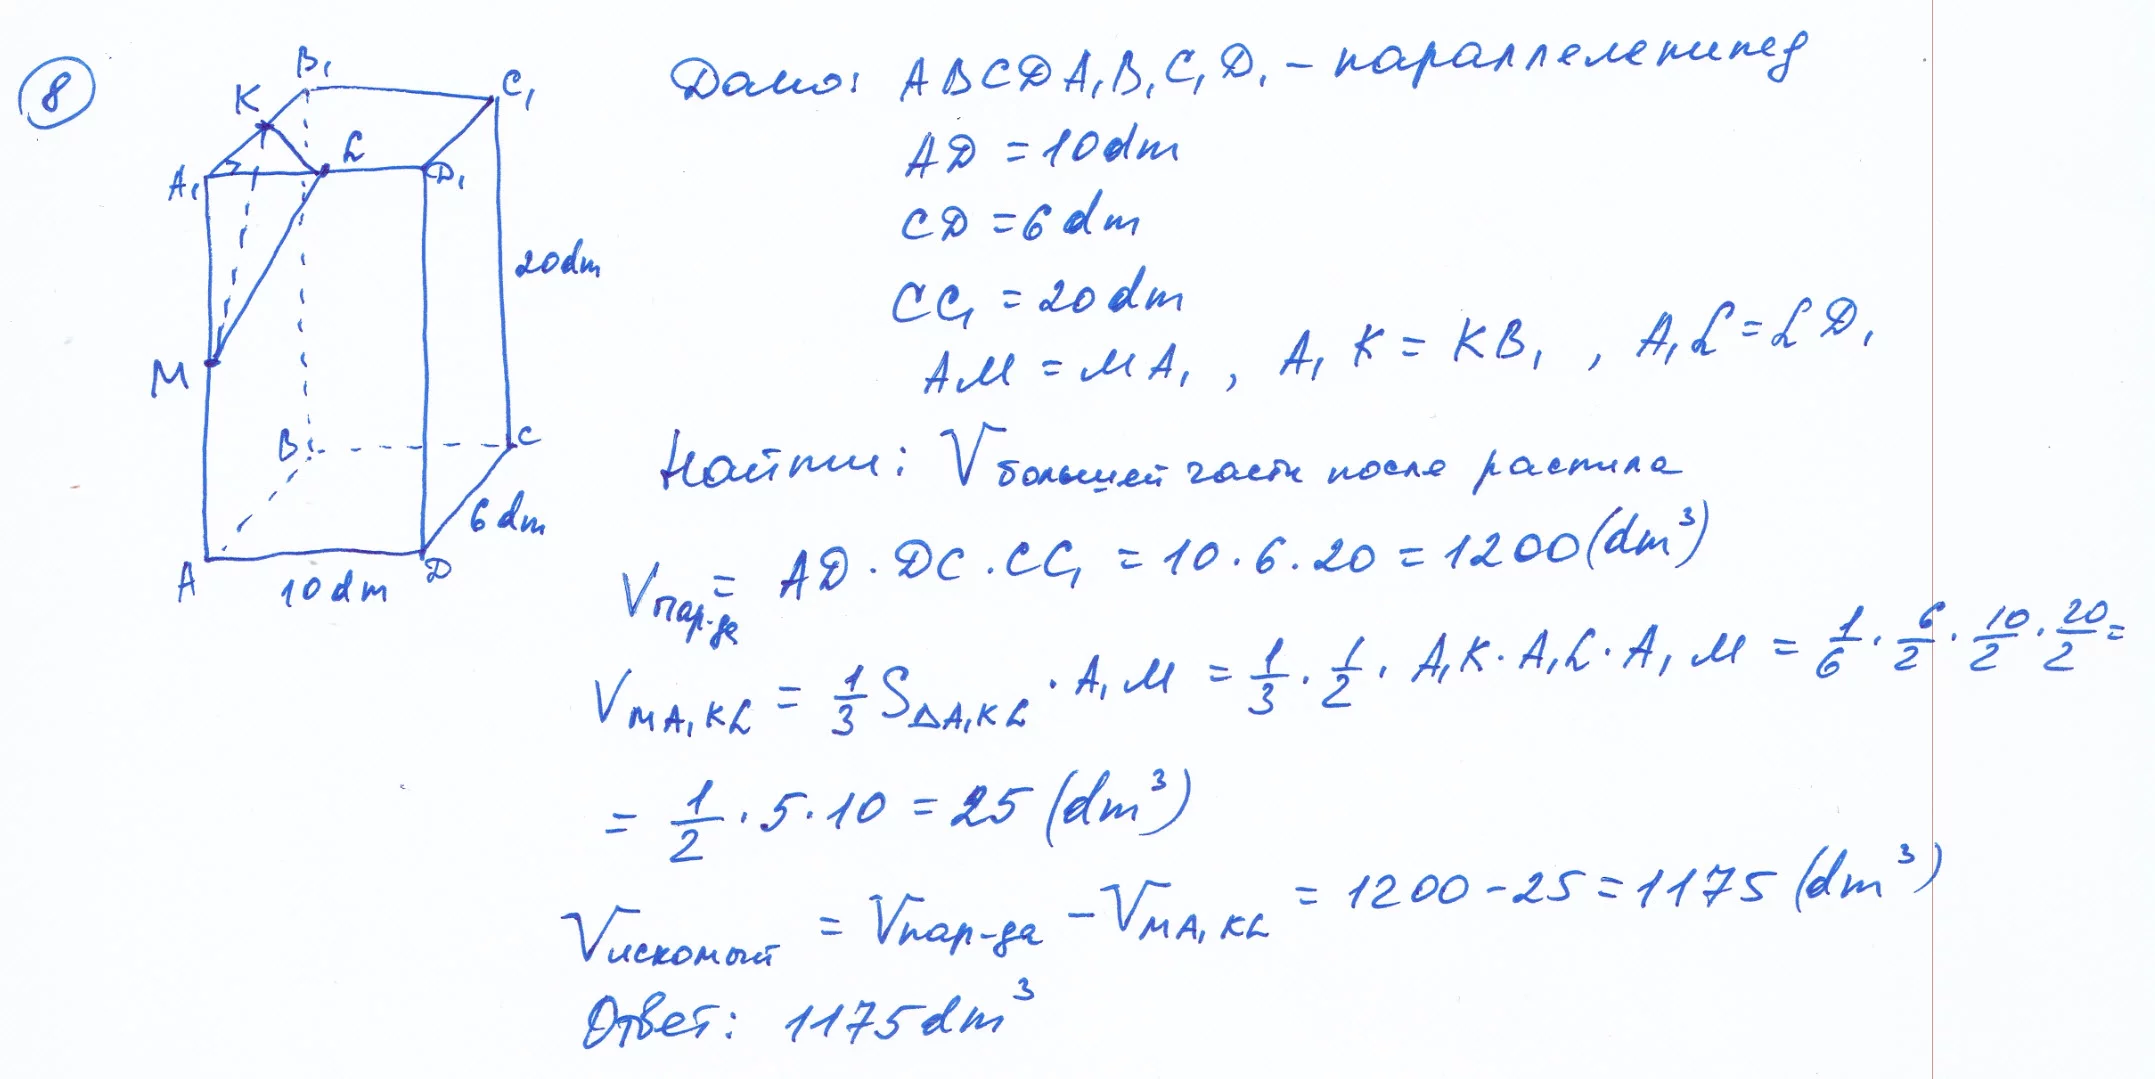 8
B₁
C₁
K
L
A₁
D₁
20dm
M
B
C
6 dm
A
D
10dm
Дано: ABCDA₁B₁C₁D₁ - параллелепипед
AD = 10dm
CD = 6 dm
CC₁ = 20 dm
AM = MA₁ , A₁K = KB₁ , A₁L = LD₁
Найти: V большей части после распила
Vпар-да = AD · DC · CC₁ = 10 · 6 · 20 = 1200 (dm³)
V MA₁KL = 1/3 S ΔA₁KL · A₁M = 1/3 · 1/2 · A₁K · A₁L · A₁M = 1/6 · 6/2 · 10/2 · 20/2 =
= 1/2 · 5 · 10 = 25 (dm³)
Vискомый = Vпар-да - V MA₁KL = 1200 - 25 = 1175 (dm³)
Ответ: 1175 dm³